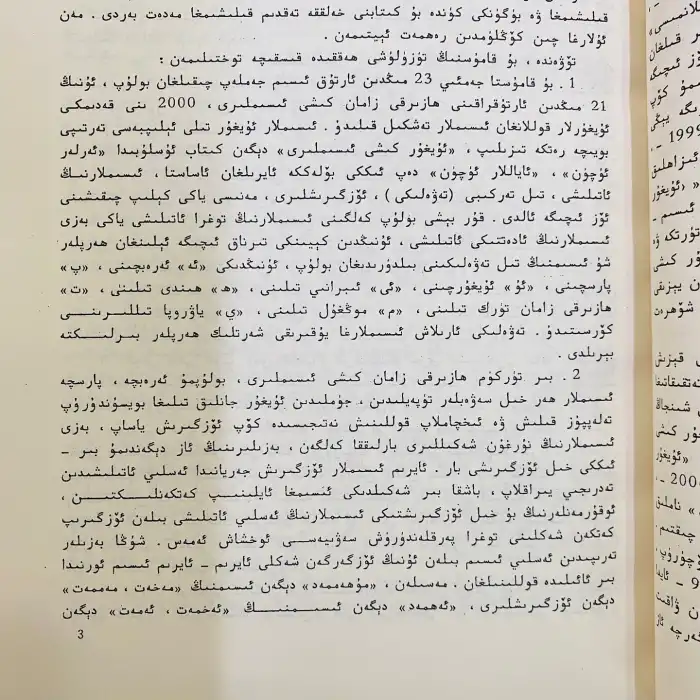 قىلىشىمغا ۋە بۈگۈنكى كۈندە بۇ كىتابنى خەلققە تەقدىم قىلىشىمغا مەدەت بەردى. مەن
ئۇلارغا چىن كۆڭلۈمدىن رەھمەت ئېيتىمەن.
تۆۋەندە، بۇ قامۇسنىڭ تۈزۈلۈشى ھەققىدە قىسقىچە توختىلىمەن:
1. بۇ قامۇستا جەمئىي 23 مىڭدىن ئارتۇق ئىسىم جەملەپ چىقىلغان بولۇپ، ئۇنىڭ
21 مىڭدىن ئارتۇقراقىنى ھازىرقى زامان كىشى ئىسىملىرى، 2000 نى قەدىمكى
ئۇيغۇرلار قوللانغان ئىسىملار تەشكىل قىلىدۇ. ئىسىملار ئۇيغۇر تىلى ئېلىپبەسى تەرتىپى
بويىچە رەتكە تىزىلىپ، «ئۇيغۇر كىشى ئىسىملىرى» دېگەن كىتاب ئۇسلۇبىدا «ئەرلەر
ئۈچۈن»، «ئاياللار ئۈچۈن» دەپ ئىككى بۆلەككە ئايرىلغان ئاساستا، ئىسىملارنىڭ
ئاتىلىشى، تىل تەركىبى (تەۋەلىكى)، ئۆزگىرىشلىرى، مەنىسى ياكى كېلىپ چىقىشىنى
ئۆز ئىچىگە ئالدى. قۇر بېشى بولۇپ كەلگىنى ئىسىملارنىڭ توغرا ئاتىلىشى ياكى بەزى
ئىسىملارنىڭ ئادەتتىكى ئاتىلىشى، ئۇنىڭدىن كېيىنكى تىرناق ئىچىگە ئېلىنغان ھەرپلەر
شۇ ئىسىمنىڭ تىل تەۋەلىكىنى بىلدۈرىدىغان بولۇپ، ئۇنىڭدىكى «ئە» ئەرەبچىنى، «پ»
پارسچىنى، «ئۇ» ئۇيغۇرچىنى، «ئى» ئىبرانىي تىلىنى، «ھ» ھىندى تىلىنى، «ت»
ھازىرقى زامان تۈرك تىلىنى، «م» موڭغۇل تىلىنى، «ي» ياۋروپا تىللىرىنى
كۆرسىتىدۇ. تەۋەلىكى ئارىلاش ئىسىملارغا يۇقىرىقى شەرتلىك ھەرپلەر بىرلىكتە
بېرىلدى.
2. بىر تۈركۈم ھازىرقى زامان كىشى ئىسىملىرى، بولۇپمۇ ئەرەبچە، پارسچە
ئىسىملار ھەر خىل سەۋەبلەر تۈپەيلىدىن، جۈملىدىن ئۇيغۇر جانلىق تىلىغا بويسۇندۇرۇپ
تەلەپپۇز قىلىش ۋە ئىخچاملاپ قوللىنىش نەتىجىسىدە كۆپ ئۆزگىرىش ياساپ، بەزى
ئىسىملارنىڭ نۇرغۇن شەكىللىرى بارلىققا كەلگەن، بەزىلىرىنىڭ ئاز دېگەندىمۇ بىر -
ئىككى خىل ئۆزگىرىشى بار. ئايرىم ئىسىملار ئۆزگىرىش جەريانىدا ئەسلىي ئاتىلىشىدىن
تەدرىجىي يىراقلاپ، باشقا بىر شەكىلدىكى ئىسىمغا ئايلىنىپ كەتكەنلىكتىن،
ئوقۇرمەنلەرنىڭ بۇ خىل ئۆزگىرىشتىكى ئىسىملارنىڭ ئەسلىي ئاتىلىشى بىلەن ئۆزگىرىپ
كەتكەن شەكلىنى توغرا پەرقلەندۈرۈش سەۋىيەسى ئوخشاش ئەمەس. شۇڭا بەزىلەر
تەرىپىدىن ئەسلىي ئىسىم بىلەن ئۇنىڭ ئۆزگەرگەن شەكلى ئايرىم - ئايرىم ئىسىم ئورنىدا
بىر ئائىلىدە قوللىنىلغان. مەسىلەن، «مۇھەممەد» دېگەن ئىسىمنىڭ «مەخەت، مەممەت»
دېگەن ئۆزگىرىشلىرى، «ئەھمەد» دېگەن ئىسىمنىڭ «ئەخمەت، ئەمەت» دېگەن
3